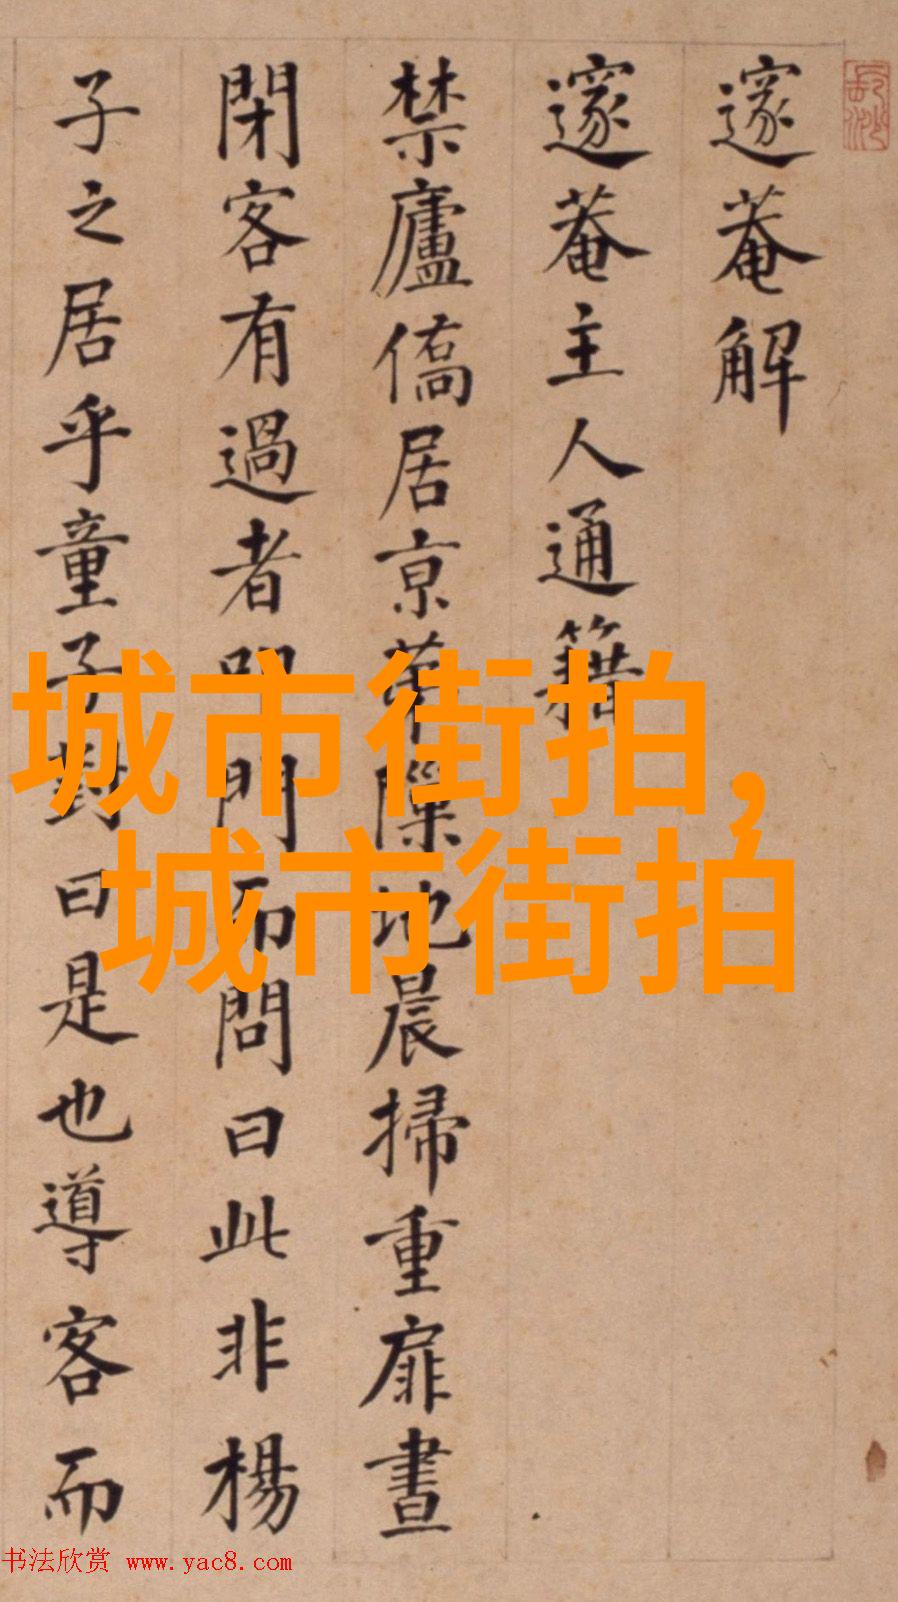 邃菴解
邃菴主人通籍
禁廬僑居京第隟地晨掃重扉晝
閉客有過者叩門而問曰此非楊
子之居乎童子對曰是也導客而
城市街拍,
城市街拍
书法欣赏 www.yac8.com